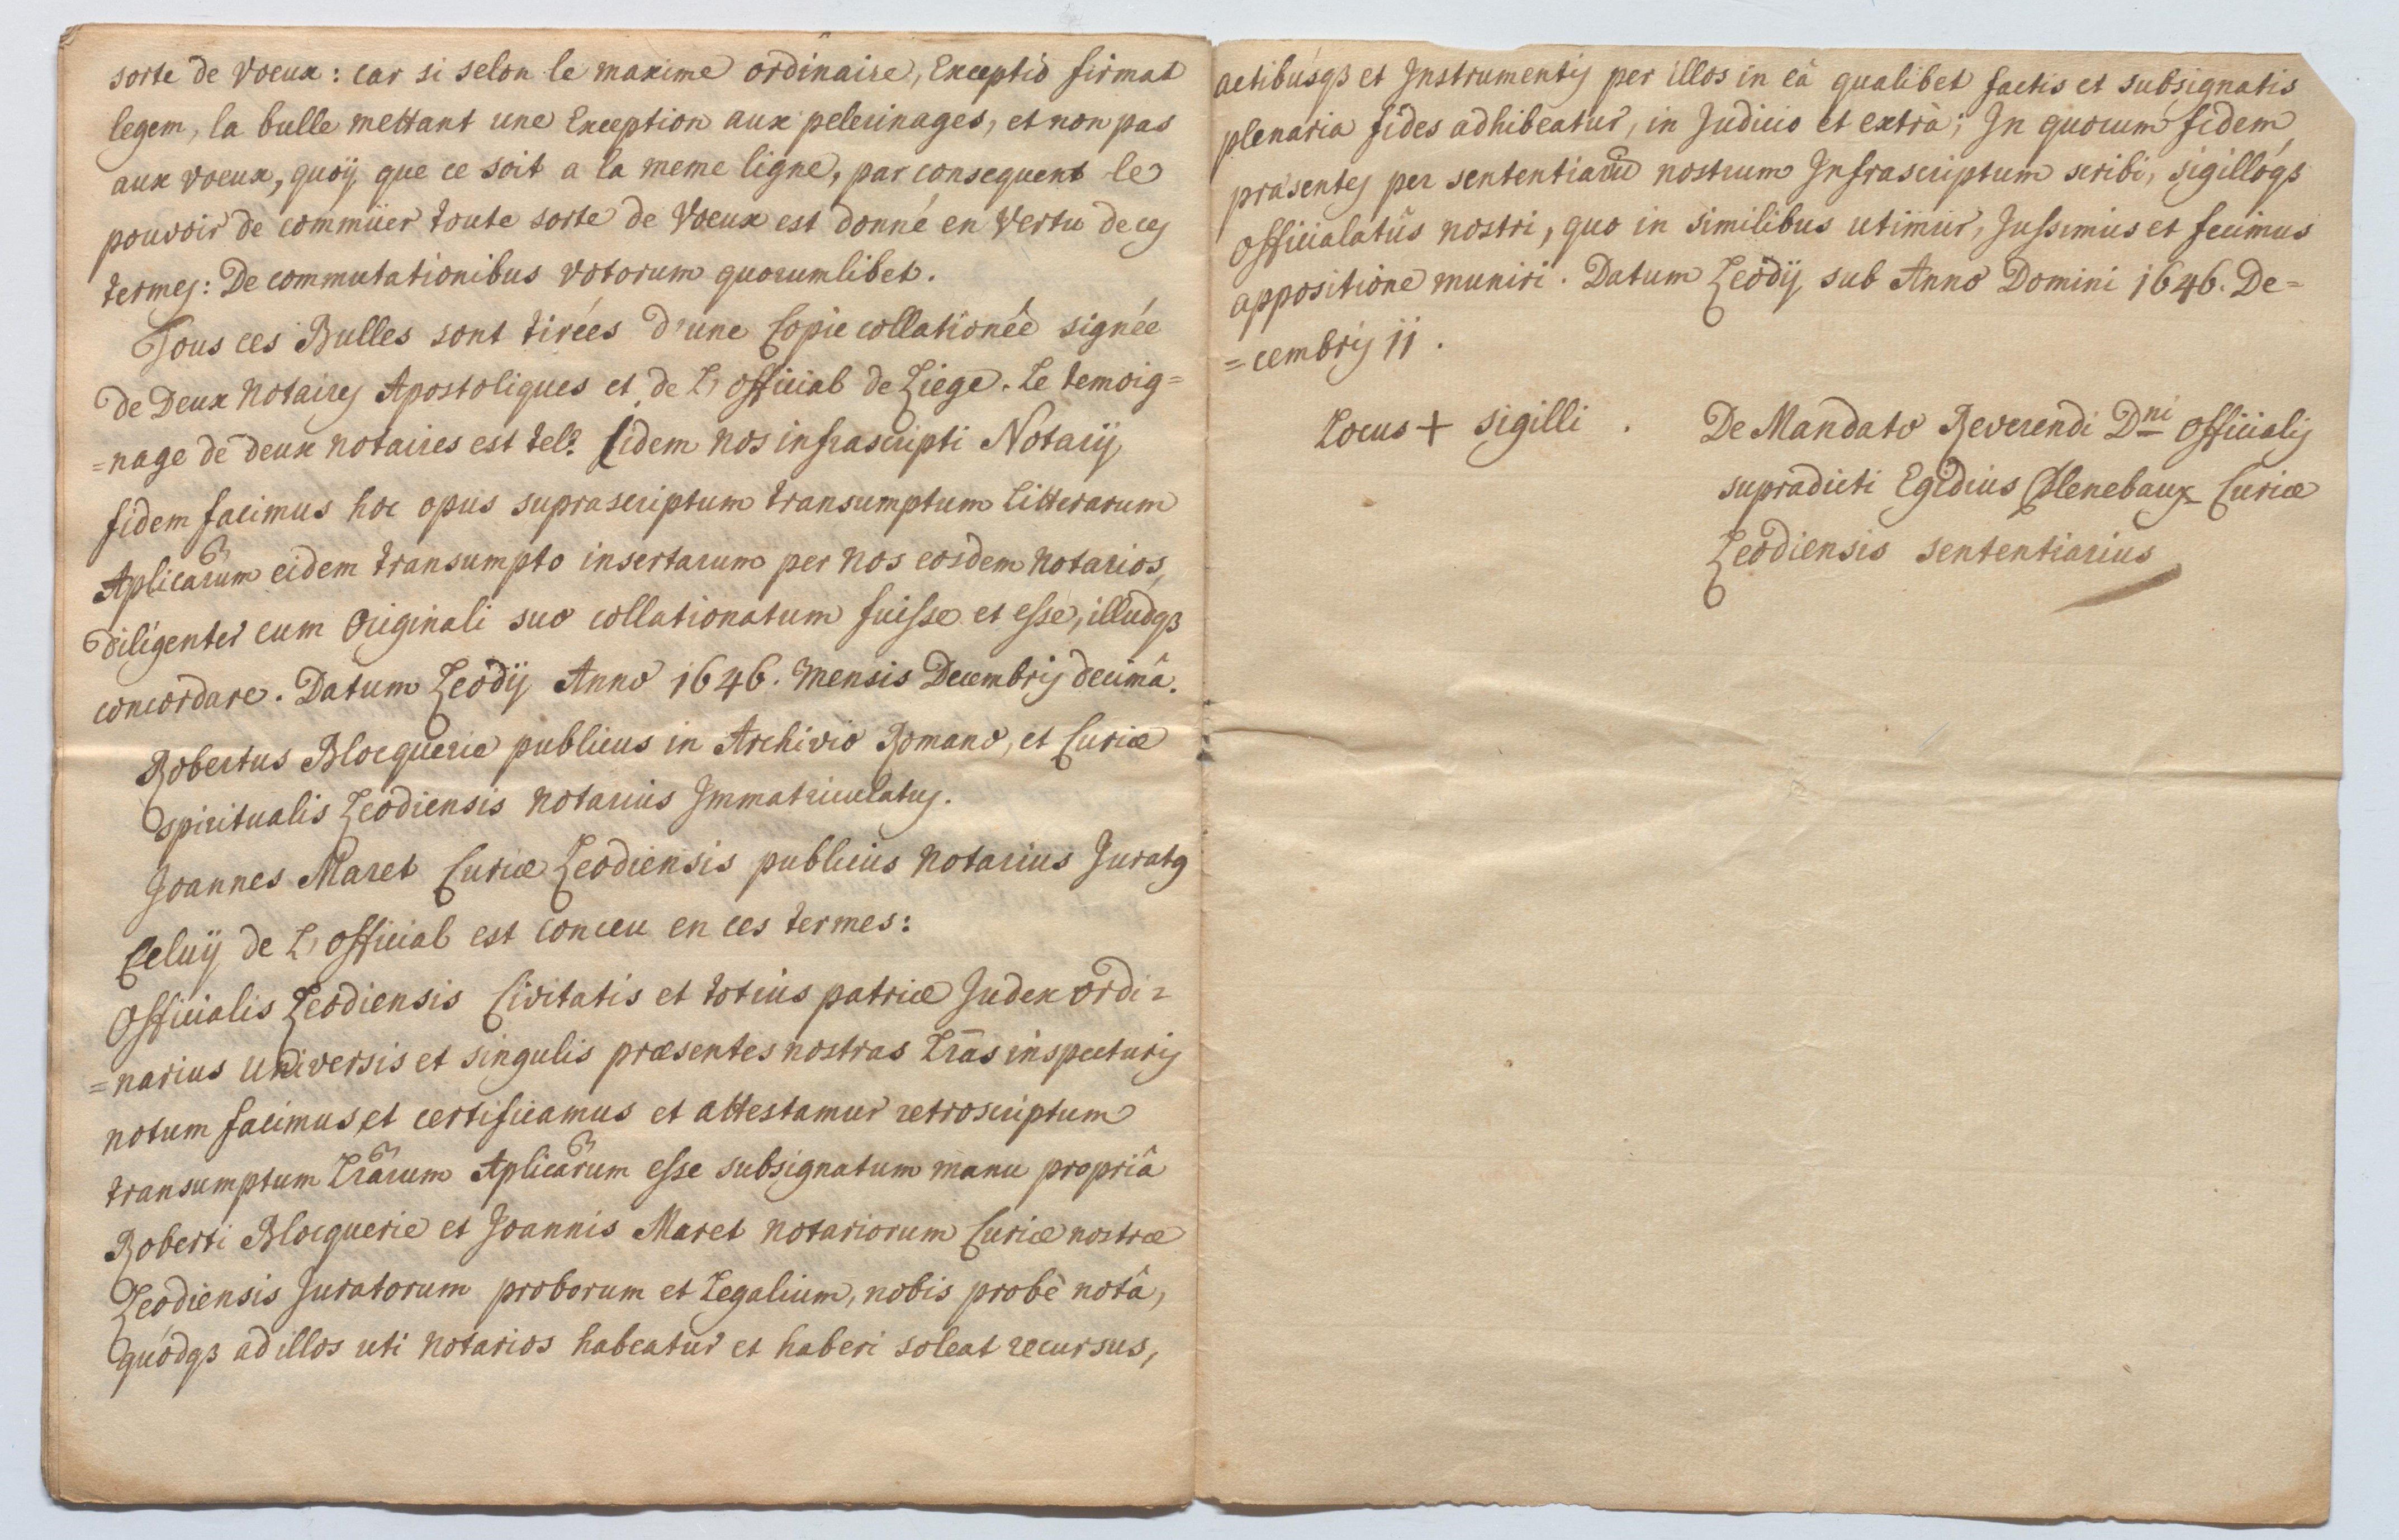 sorte de voeux : car si selon le maxime ordinaire, Exceptio firmat
legem, la bulle mettant une Exception aux pelerinages, et non pas
aux voeux, quoÿ que ce soit a la meme ligne, par consequent le
pouvoir de commüer toute sorte de voeux est donné en vertu de ces
termes : De commutationibus votorum quorumlibet.
Tous ces Bulles sont tirées d'une Copie collationée signée
de Deux Notaires Apostoliques et de L'official de Liege. Le temoig=
=nage de deux notaires est tel: Eidem nos infrascripti Notarij
fidem facimus hoc opus suprascriptum transumptum Litterarum
Aplicarum eidem transumpto insertarum per nos eosdem notarios,
diligenter cum originali suo collationatum fuisse et esse, illudqꝫ
concordare. Datum Leodij Anno 1646. mensis Decembris decimâ.
Robertus Blocquerie publicus in Archivio Romano, et Curiæ
spiritualis Leodiensis notarius Immatriculatus.
Joannes Maret Curiæ Leodiensis publicus notarius Juratꝰ
Celuÿ de L'official est conceu en ces termes :
Officialis Leodiensis Civitatis et totius patriæ Judex ordi=
=narius universis et singulis præsentes nostras Lrãs inspecturis
notum facimus, et certificamus et attestamur retroscriptum
transumptum Lrãrum Aplicarum esse subsignatum manu propriâ
Roberti Blocquerie et Joannis Maret notariorum Curiæ nostræ
Leodiensis Juratorum proborum et Legalium, nobis probè notâ,
quódqꝫ ad illos uti notarios habeatur et haberi soleat recursus,
actibúsqꝫ et Instrumentis per illos in eâ qualibet factis et subsignatis
plenaria fides adhibeatur, in Judicio et extrà; In quorum fidem
præsentes per sententiariũ nostrum Infrascriptum scribi, sigillóqꝫ
officialatûs nostri, quo in similibus utimur, Jussimus et fecimus
appositione muniri. Datum Leodij sub Anno Domini 1646. De=
=cembris 11.
Locus + sigilli .
De Mandato Reverendi Dni officialis
supradicti Egidius
Curiæ
Leodiensis sententiarius